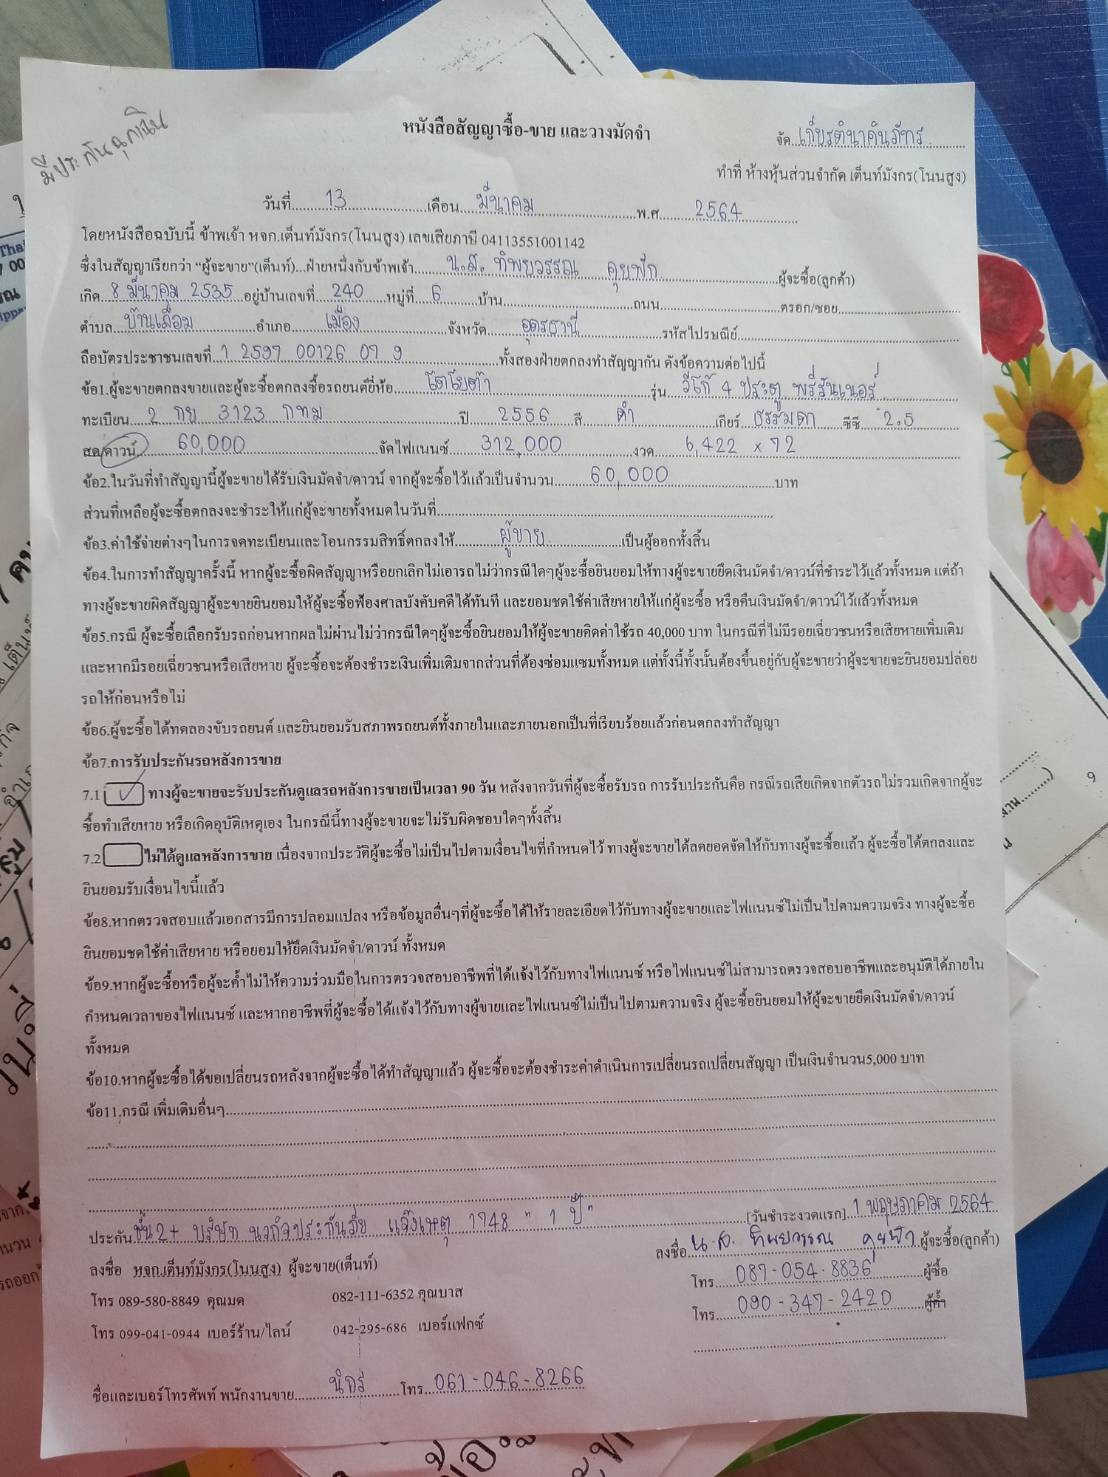 มีประกันฉุกเฉิน
หนังสือสัญญาซื้อ-ขาย และวางมัดจำ
จัด...เกียรตินาคินภัทร
ทำที่ ห้างหุ้นส่วนจำกัด เต็นท์มังกร(โนนสูง)
วันที่ 13 เดือน มีนาคม พ.ศ 2564
โดยหนังสือฉบับนี้ ข้าพเจ้า หจก.เต็นท์มังกร(โนนสูง) เลขเสียภาษี 04113551001142
ซึ่งในสัญญาเรียกว่า "ผู้จะขาย"(เต็นท์)...ฝ่ายหนึ่งกับข้าพเจ้า น.ส. ทิพยวรรณ คุยฟัก ผู้จะซื้อ(ลูกค้า)
เกิด 8 มีนาคม 2535 อยู่บ้านเลขที่ 240 หมู่ที่ 6 บ้าน ถนน ตรอก/ซอย
ตำบล บ้านเลื่อม อำเภอ เมือง จังหวัด อุดรธานี รหัสไปรษณีย์
ถือบัตรประชาชนเลขที่ 1 2597 00126 07 9 ทั้งสองฝ่ายตกลงทำสัญญากัน ดังข้อความต่อไปนี้
ข้อ1.ผู้จะขายตกลงขายและผู้จะซื้อตกลงซื้อรถยนต์ยี่ห้อ โตโยต้า รุ่น วีโก้ 4 ประตู พรีรันเนอร์
ทะเบียน 2 กย 3123 กทม ปี 2556 สี ดำ เกียร์ ธรรมดา ซีซี 2.5
สด/ดาวน์ 60,000 จัดไฟแนนซ์ 312,000 งวด 6,422 x 72
ข้อ2.ในวันที่ทำสัญญานี้ผู้จะขายได้รับเงินมัดจำ/ดาวน์ จากผู้จะซื้อไว้แล้วเป็นจำนวน 60,000 บาท
ส่วนที่เหลือผู้จะซื้อตกลงจะชำระให้แก่ผู้จะขายทั้งหมดในวันที่
ข้อ3.ค่าใช้จ่ายต่างๆในการจดทะเบียนและโอนกรรมสิทธิ์ตกลงให้ ผู้ขาย เป็นผู้ออกทั้งสิ้น
ข้อ4.ในการทำสัญญาครั้งนี้ หากผู้จะซื้อผิดสัญญาหรือยกเลิกไม่เอารถไม่ว่ากรณีใดๆผู้จะซื้อยินยอมให้ทางผู้จะขายยึดเงินมัดจำ/ดาวน์ที่ชำระไว้แล้วทั้งหมด แต่ถ้า
ทางผู้จะขายผิดสัญญาผู้จะขายยินยอมให้ผู้จะซื้อฟ้องศาลบังคับคดีได้ทันที และยอมชดใช้ค่าเสียหายให้แก่ผู้จะซื้อ หรือคืนเงินมัดจำ/ดาวน์ไว้แล้วทั้งหมด
ข้อ5.กรณี ผู้จะซื้อเลือกรับรถก่อนหากผลไม่ผ่านไม่ว่ากรณีใดๆผู้จะซื้อยินยอมให้ผู้จะขายคิดค่าใช้รถ 40,000 บาท ในกรณีที่ไม่มีรอยเฉี่ยวชนหรือเสียหายเพิ่มเติม
และหากมีรอยเฉี่ยวชนหรือเสียหาย ผู้จะซื้อจะต้องชำระเงินเพิ่มเติมจากส่วนที่ต้องซ่อมแซมทั้งหมด แต่ทั้งนี้ทั้งนั้นต้องขึ้นอยู่กับผู้จะขายว่าผู้จะขายจะยินยอมปล่อย
รถให้ก่อนหรือไม่
ข้อ6.ผู้จะซื้อได้ทดลองขับรถยนต์ และยินยอมรับสภาพรถยนต์ทั้งภายในและภายนอกเป็นที่เรียบร้อยแล้วก่อนตกลงทำสัญญา
ข้อ7.การรับประกันรถหลังการขาย
7.1 ✓ ทางผู้จะขายจะรับประกันดูแลรถหลังการขายเป็นเวลา 90 วัน หลังจากวันที่ผู้จะซื้อรับรถ การรับประกันคือ กรณีรถเสียเกิดจากตัวรถไม่รวมเกิดจากผู้จะ
ซื้อทำเสียหาย หรือเกิดอุบัติเหตุเอง ในกรณีนี้ทางผู้จะขายจะไม่รับผิดชอบใดๆทั้งสิ้น
7.2 ไม่ได้ดูแลหลังการขาย เนื่องจากประวัติผู้จะซื้อไม่เป็นไปตามเงื่อนไขที่กำหนดไว้ ทางผู้จะขายได้ลดยอดจัดให้กับทางผู้จะซื้อแล้ว ผู้จะซื้อได้ตกลงและ
ยินยอมรับเงื่อนไขนี้แล้ว
ข้อ8.หากตรวจสอบแล้วเอกสารมีการปลอมแปลง หรือข้อมูลอื่นๆที่ผู้จะซื้อได้ให้รายละเอียดไว้กับทางผู้จะขายและไฟแนนซ์ไม่เป็นไปตามความจริง ทางผู้จะซื้อ
ยินยอมชดใช้ค่าเสียหาย หรือยอมให้ยึดเงินมัดจำ/ดาวน์ ทั้งหมด
ข้อ9.หากผู้จะซื้อหรือผู้จะค้ำไม่ให้ความร่วมมือในการตรวจสอบอาชีพที่ได้แจ้งไว้กับทางไฟแนนซ์ หรือไฟแนนซ์ไม่สามารถตรวจสอบอาชีพและอนุมัติได้ภายใน
กำหนดเวลาของไฟแนนซ์ และหากอาชีพที่ผู้จะซื้อได้แจ้งไว้กับทางผู้ขายและไฟแนนซ์ไม่เป็นไปตามความจริง ผู้จะซื้อยินยอมให้ผู้จะขายยึดเงินมัดจำ/ดาวน์
ทั้งหมด
ข้อ10.หากผู้จะซื้อได้ขอเปลี่ยนรถหลังจากผู้จะซื้อได้ทำสัญญาแล้ว ผู้จะซื้อจะต้องชำระค่าดำเนินการเปลี่ยนรถเปลี่ยนสัญญา เป็นเงินจำนวน5,000 บาท
ข้อ11.กรณี เพิ่มเติมอื่นๆ
ประกัน ชั้น 2+ บริษัท นวกิจประกันภัย แจ้งเหตุ 1748 "1 ปี" [วันชำระงวดแรก] 1 พฤษภาคม 2564
ลงชื่อ น.ส. ทิพยวรรณ คุยฟัก ผู้จะซื้อ(ลูกค้า)
ลงชื่อ หจก.เต็นท์มังกร(โนนสูง) ผู้จะขาย(เต็นท์)
โทร 087-054-8836 ผู้ซื้อ
โทร 089-580-8849 คุณมด 082-111-6352 คุณบาส
โทร 090-347-2420 ผู้ค้ำ
โทร 099-041-0944 เบอร์ร้าน/ไลน์ 042-295-686 เบอร์แฟกซ์
ชื่อและเบอร์โทรศัพท์ พนักงานขาย นิกร โทร 061-046-8266